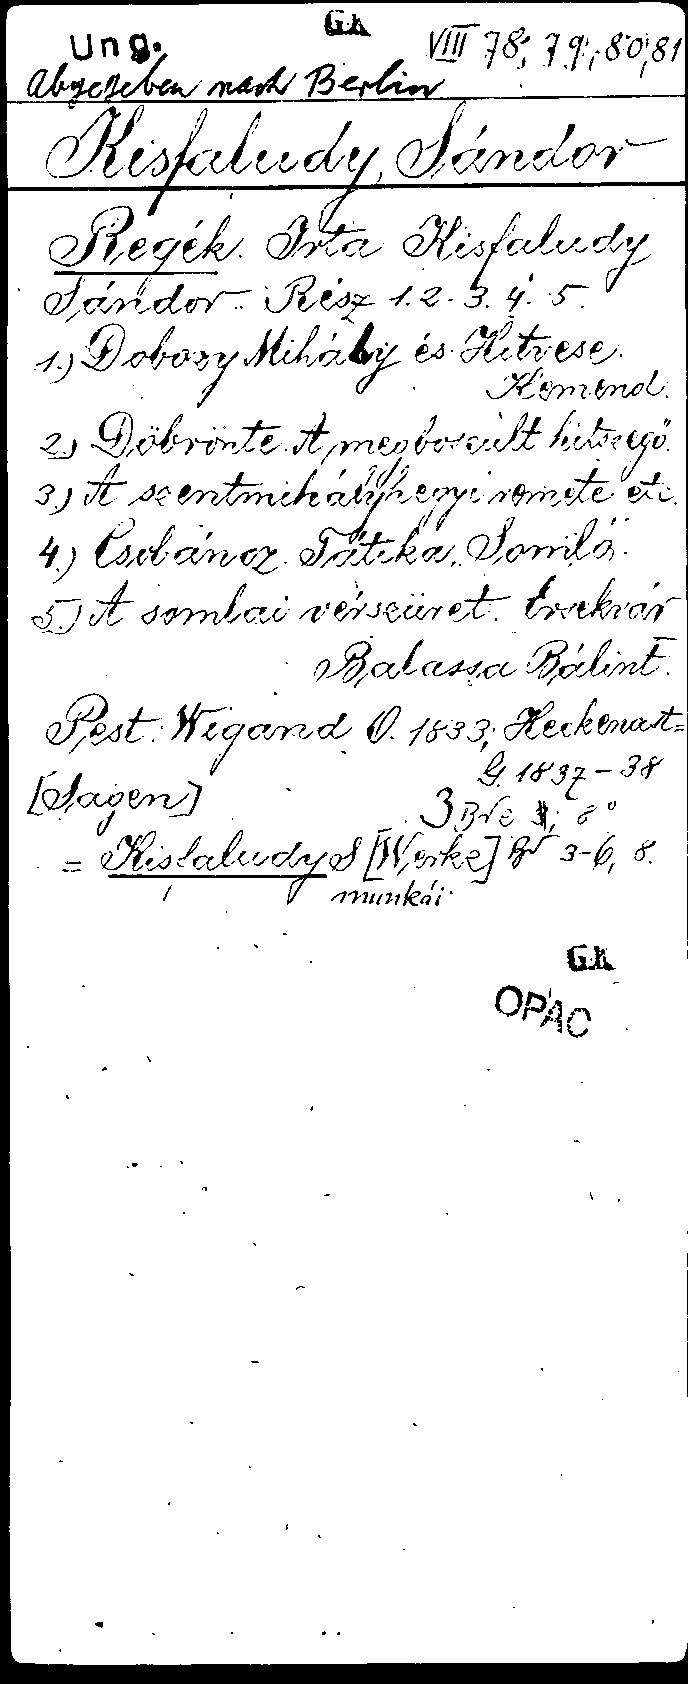 G.K
Ung. VIII 78, 79, 80, 81
Abgegeben nach Berlin
Kisfaludy, Sándor
Regék. Irta Kisfaludy
Sándor. Rész 1. 2. 3. 4. 5.
1.) Dobozy Mihály és Hitvese.
Kemend.
2.) Döbrönte. A megboszult hitszegő.
3.) A szentmihályhegyi remete etc.
4.) Csobáncz. Tátika. Somló.
5.) A somlai vérszüret. Érsekvár
Balassa Bálint.
Pest. Wigand O. 1833; Heckenast=
G. 1837-38
[Sagen]
3 Bde 8°
= Kisfaludy S [Werke] Bd 3-6, 8.
munkái
G.K
OPAC